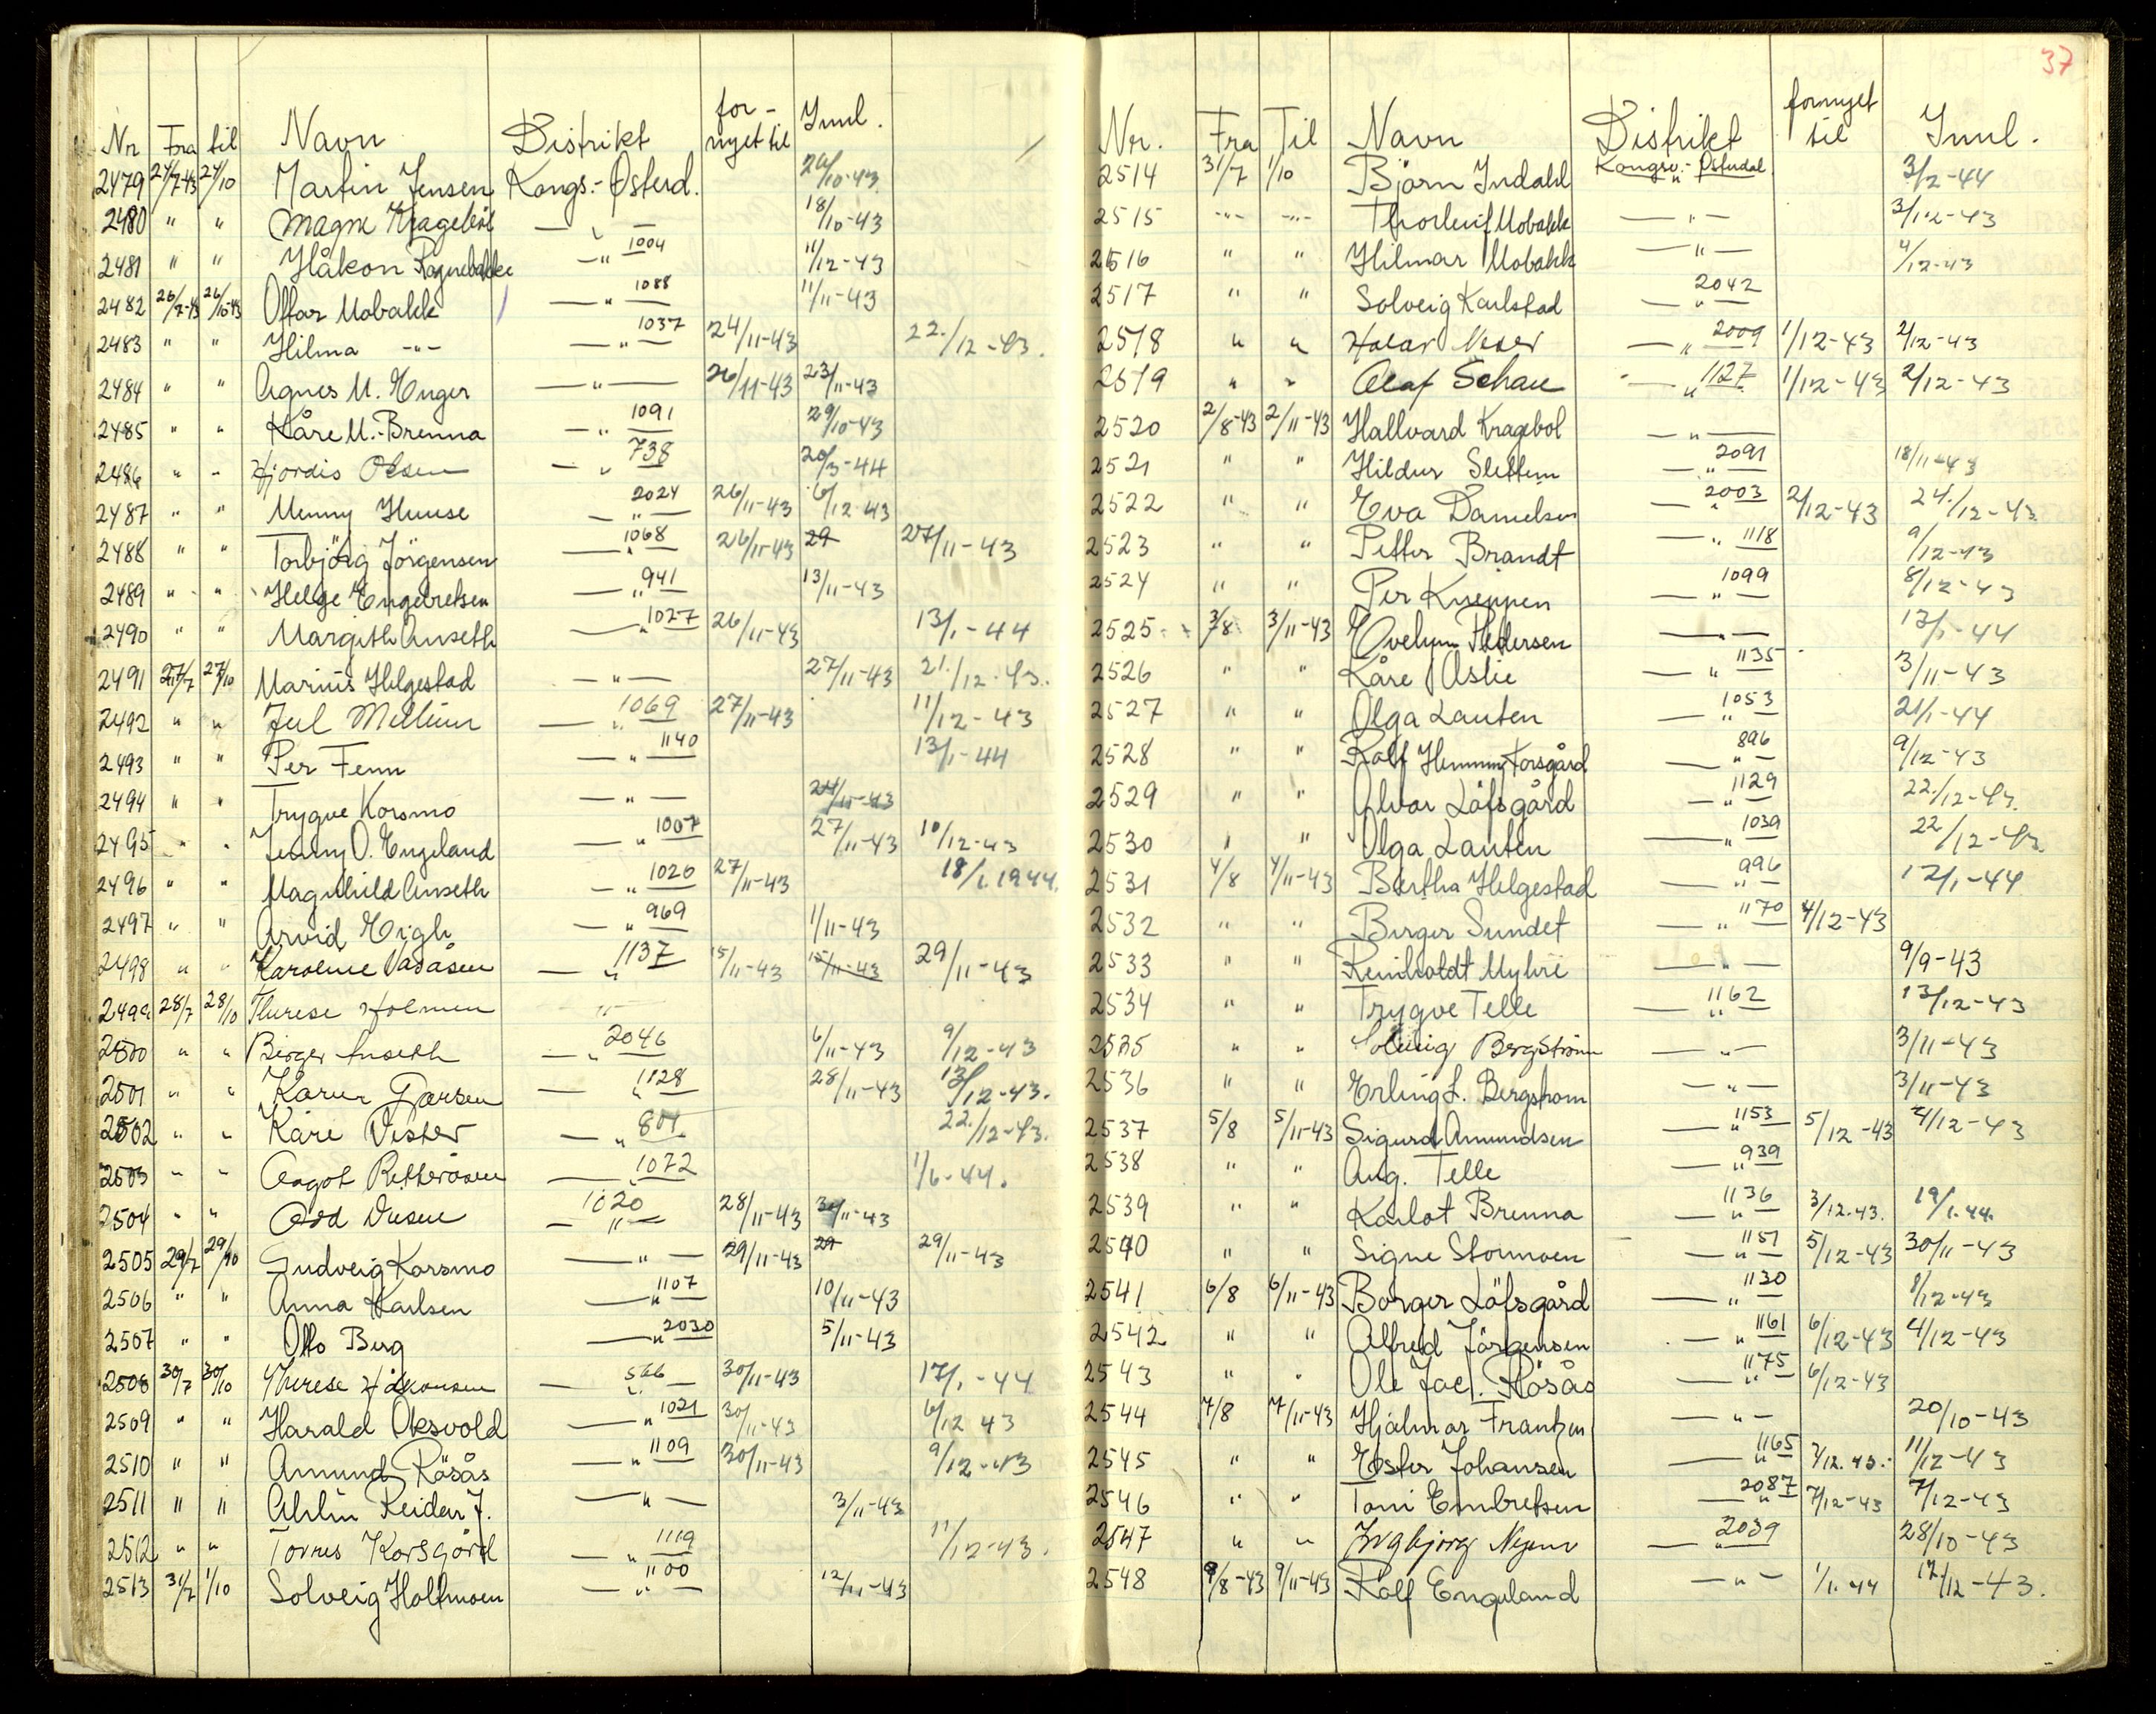 37
Nr Fra til Navn Distrikt for-nyet til Innl.
2479 24/7-43 24/10 Martin Jensen Kongs.-Østerd. 26/10-43
2480 " " Magne Kragebøl — " — 18/10-43
2481 " " Håkon Ragnebakke — " — 1004 11/12-43
2482 26/7-43 26/10-43 Ottar Mobakk — " — 1088 11/11-43
2483 " " Hilma -"- — " — 1037 24/11-43 22./12-43.
2484 " " Agnes M. Enger — " — 26/11-43 23/11-43
2485 " " Kåre M.-Brenna — " — 1091 29/10-43
2486 " " Hjördis Olsen — " — 738 20/3-44
2487 " " Menny Huuse — " — 2024 26/11-43 6/12-43
2488 " " Torbjörg Jörgensen — " — 1068 26/11-43 29 27/11-43
2489 " " Helge Engebretsen — " — 941 13/11-43
2490 " " Margith Anseth — " — 1027 26/11-43 13/1-44
2491 27/7 27/10 Marius Helgestad — " — 27/11-43 21./12.43.
2492 " " Jul Mellum — " — 1069 27/11-43 11/12-43
2493 " " Per Fenn — " — 1140 13/1-44
2494 " " Trygve Korsmo — " — 24/11-43
2495 " " Jenny O. Engeland — " — 1007 27/11-43 10/12-43
2496 " " Magnhild Anseth — " — 1026 27/11-43 18/1.1944.
2497 " " Arvid Eigh — " — 969 1/11-43
2498 " " Karoline Vasåsen — " — 1137 15/11-43 15/11-43 29/11-43
2499 28/7 28/10 Therese Holmen — " —
2500 " " Birger Anseth — " — 2046 6/11-43 9/12-43
2501 " " Karen Larsen — " — 1128 28/11-43 13/12-43.
2502 " " Kåre Vester — " — 801 22./12-43.
2503 " " Aagot Retteråsen — " — 1072 1/6-44.
2504 " " Odd Dusen — " — 1020 28/11-43 30/11-43
2505 29/7 29/10 Gudveig Korsmo — " — 29/11-43 29 29/11-43
2506 " " Anna Karlsen — " — 1107 10/11-43
2507 " " Otto Berg — " — 2030 5/11-43
2508 30/7 30/10 Therese Håkonsen — " — 566 30/11-43 17/1-44
2509 " " Harald Oksvold — " — 1021 30/11-43 6/12 43
2510 " " Amund Råsås — " — 1109 30/11-43 9/12-43
2511 " " Ahlin Reidar J. — " — 3/11-43
2512 " " Torres Korsgård — " — 1119 11/12-43.
2513 31/7 1/10 Solveig Holtmoen — " — 1100 12/11-43
Nr. Fra Til Navn Distrikt fornyet til Innl.
2514 31/7 1/10 Björn Indahl Kongsv.- Østerdal 3/2-44
2515 -"- -"- Thorleif Mobakk — " — 3/12-43
2516 " " Hilmar Mobakk — " — 4/12-43
2517 " " Solveig Karlstad — " — 2042
2518 " " — " — 2009 1/12-43 2/12-43
2519 " " Olaf Schau — " — 1127 1/12-43 2/12-43
2520 2/8-43 2/11-43 Hallvard Kragebol — " —
2521 " " Hildur Slettem — " — 2091 18/11-43
2522 " " Eva Danielsen — " — 2003 2/12-43 24./12-43
2523 " " Petter Brandt — " — 1118 9/12-43
2524 " " Per Kneppen — " — 1099 8/12-43
2525 3/8 3/11-43 Evelynn Pedersen — " — 13/1-44
2526 " " Kåre Aslie — " — 1135 3/11-43
2527 " " Olga Lauten — " — 1053 21/1-44
2528 " " Rolf Henning Korsgård — " — 896 9/12-43
2529 " " Alvar Löfsgård — " — 1129 22./12-43.
2530 " " Olga Lauten — " — 1039 22/12-43.
2531 4/8 4/11-43 Bertha Helgestad — " — 996 12/1-44
2532 " " Birger Sundet — " — 1170 4/12-43
2533 " " Reinholdt Myhre — " — 9/9-43
2534 " " Trygve Telle — " — 1162 13/12-43
2535 " " Solveig Bergström — " — 3/11-43
2536 " " Erling L. Bergstrom — " — 3/11-43
2537 5/8 5/11-43 Sigurd Amundsen — " — 1153 5/12-43 4/12-43
2538 " " Aug. Telle — " — 939
2539 " " Karlot Brenna — " — 1136 3/12.43. 19/1.44.
2540 " " Signe Stormoen — " — 1151 5/12-43 30/11-43
2541 6/8 6/11-43 Borger Löfsgård — " — 1130 1/12-43
2542 " " Alfred Jörgensen — " — 1161 6/12-43 4/12-43
2543 " " Ole Jac. Råsås — " — 1175 6/12-43
2544 7/8 7/11-43 Hjalmar Frantzen — " — 20/10-43
2545 " " Ester Johansen — " — 1165 7/12.43. 11/12-43
2546 " " Toni Embretsen — " — 2087 7/12-43 7/12-43
2547 " " Ingbjorg Nygem — " — 2039 28/10-43
2548 9/8-43 9/11-43 Rolf Engeland — " — 1/1.44 12/12-43.